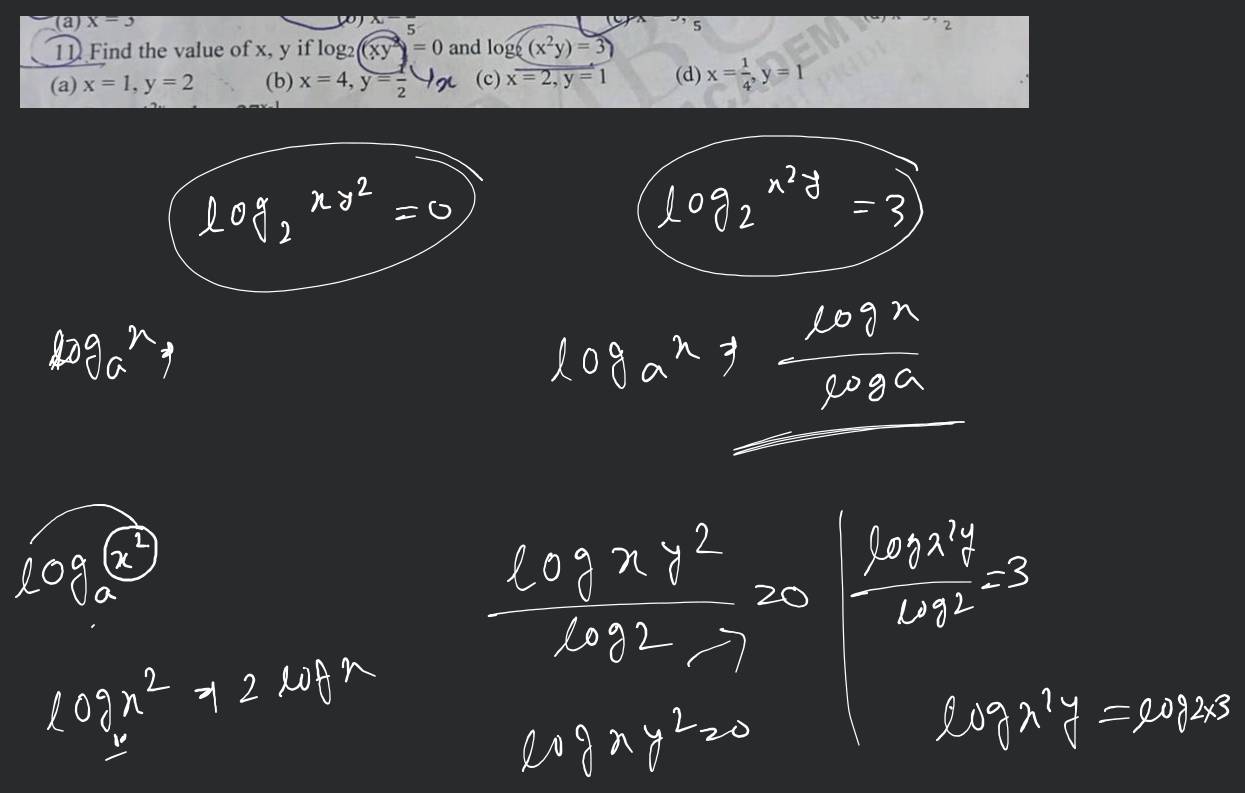 (a) x = 3
11. Find the value of x, y if log₂ (xy²) = 0 and log₂ (x²y) = 3
(a) x = 1, y = 2 (b) x = 4, y = 1/2 (c) x = 2, y = 1 (d) x = 1/4, y = 1
log₂ xy² = 0 log₂ x²y = 3
logₐ x ⇒ logₐ x ⇒ log x / log a
logₐ x²
log xy² / log 2 = 0 log x²y / log 2 = 3
log x² ⇒ 2 log x
log xy² = 0 log x²y = log 2 × 3